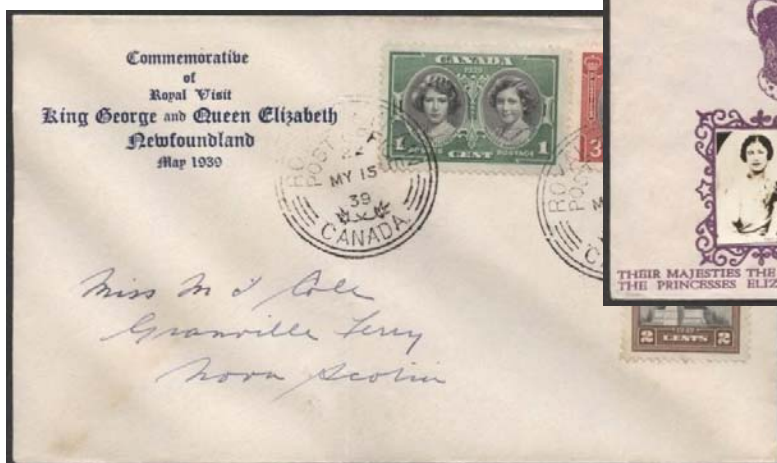 Commemorative
of
Royal Visit
King George and Queen Elizabeth
Newfoundland
May 1939
CANADA
1939
1 CENT POSTAGE 1
3
MY 15
39
CANADA
Miss M Cole
Granville Ferry
Nova Scotia
THEIR MAJESTIES THE
THE PRINCESSES ELIZ
2 CENTS 2